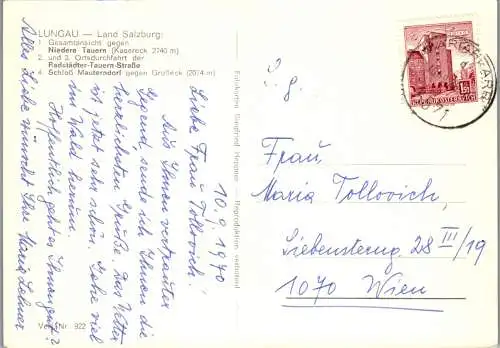 LUNGAU — Land Salzburg:
1 Gesamtansicht gegen
Niedere Tauern (Kasereck 2740 m)
2. und 3. Ortsdurchfahrt der
Radstädter-Tauern-Straße
4. Schloß Mauterndorf gegen Großeck (2074 m)
10.9.1970
Liebe Frau Tollovich!
Aus Ihnen vertrauter
Gegend, sende ich Ihnen die
herzlichsten Grüße. Das Wetter
ist jetzt sehr schön. Gehe viel
im Wald herum.
Hoffentlich geht es Ihnen gut?
Alles Liebe wünscht Ihre Maria
Verl. Nr. 922
Reproduktion verboten!
MARIAPFARR
1.50
REPUBLIK ÖSTERREICH
S. g.
Frau
Maria Tollovich,
Siebensterng. 28 III/19
1070 Wien